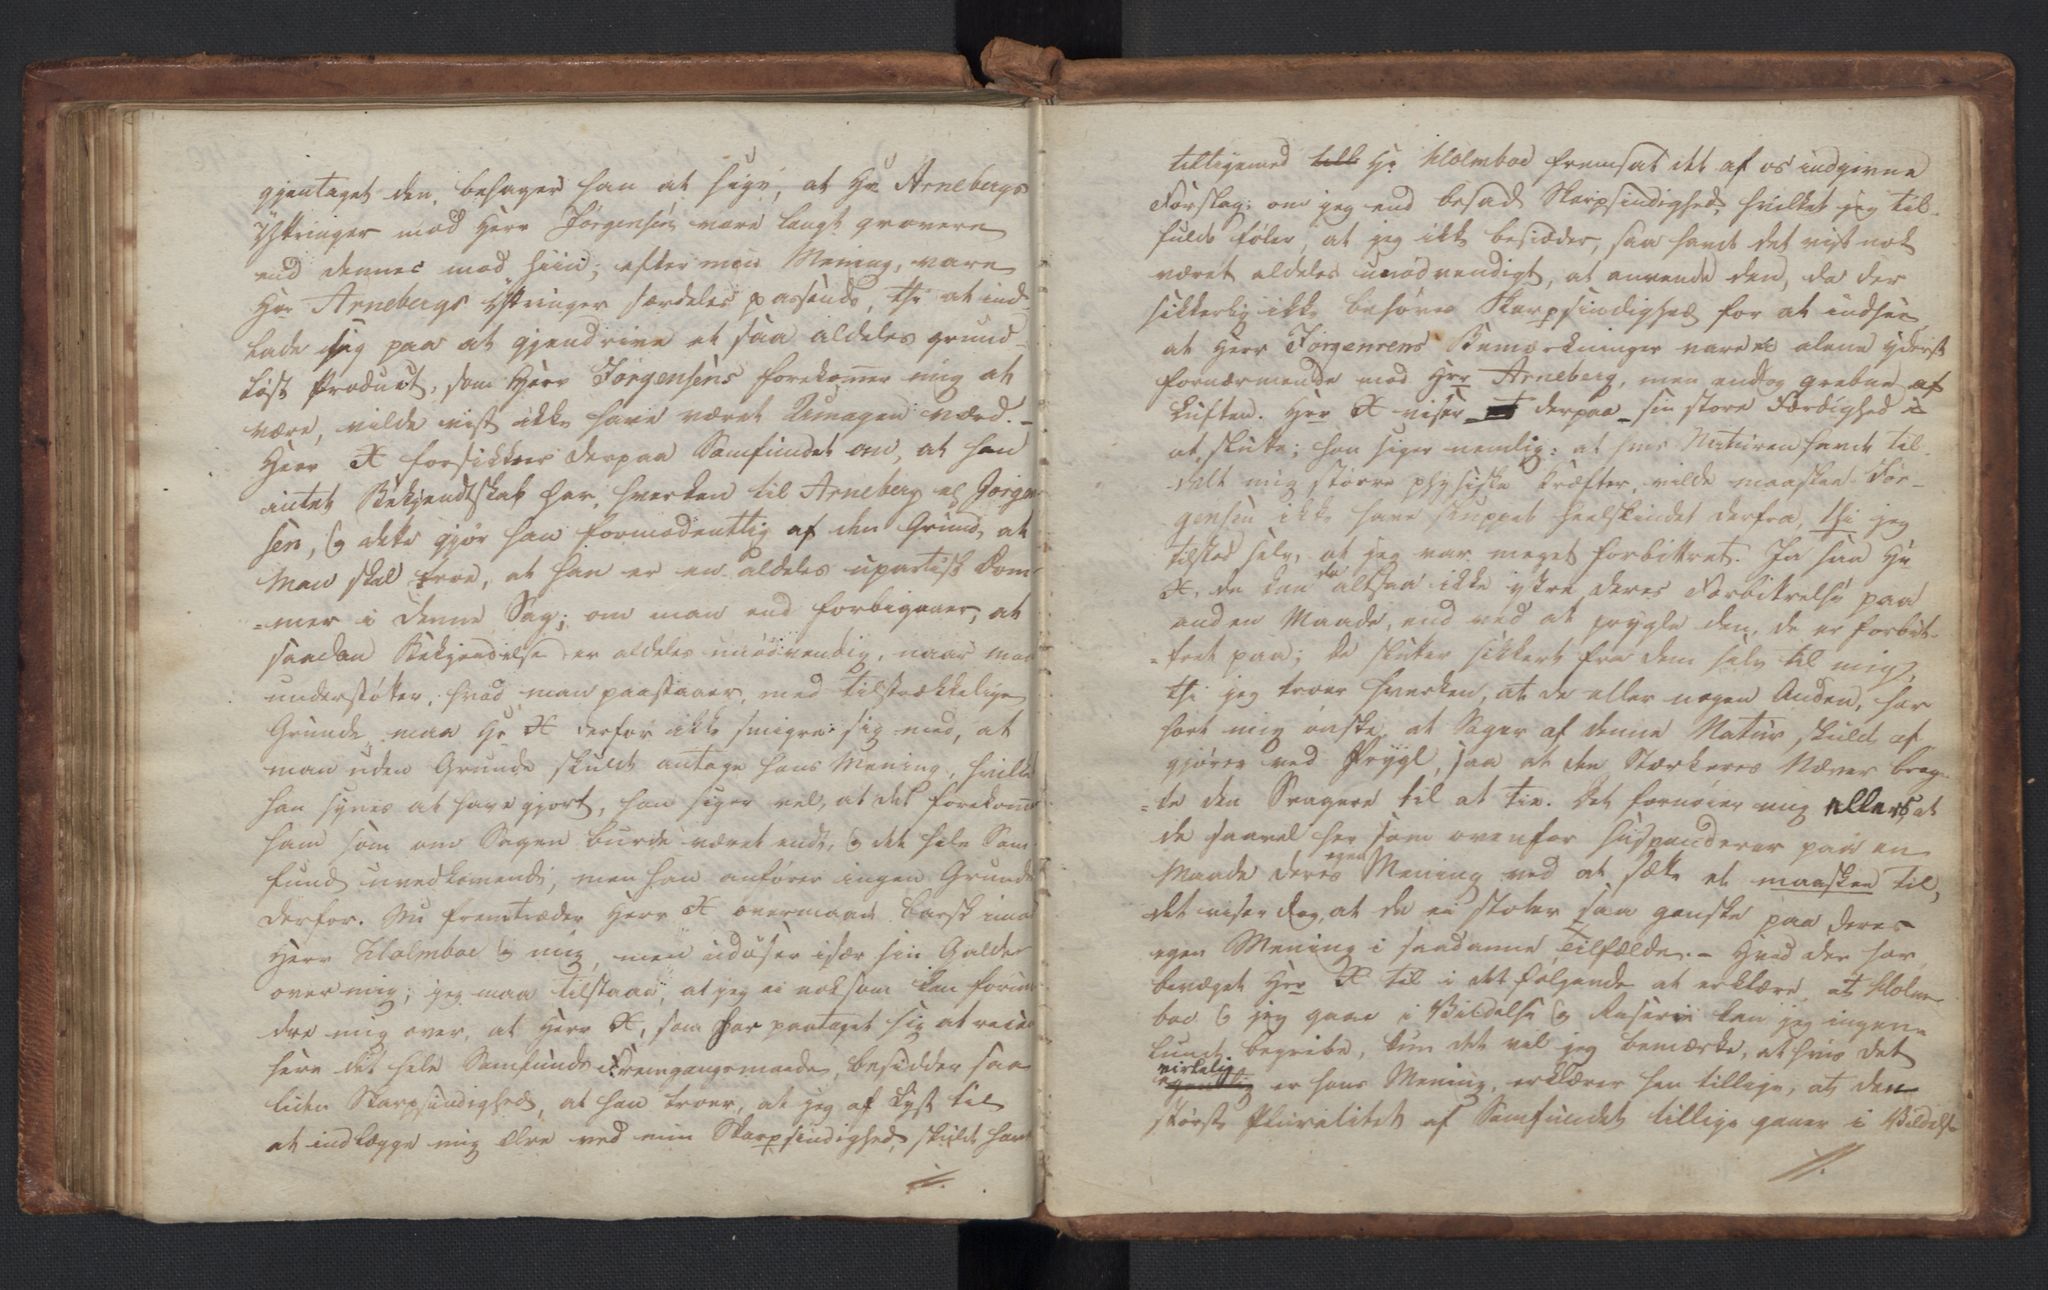 gjentaget den, behager han at sige, at Hr Arnebergs
Yttringer mod Herr Jørgensen vare langt grovere
end dennes mod hiin; efter min Mening, vare
Hr Arnebergs Yttringer særdeles passende, thi at ind-
lade sig paa at gjendrive et saa aldeles grund-
løst Product, som Herr Jørgensens forekommer mig at
være, vilde vist ikke have været Umagen værd. -
Herr X forsikkrer derpaa Samfundet om, at han
intet Bekjendtskab har, hverken til Arneberg el Jørgen-
sen, og dette gjør han formodentlig af den Grund, at
Man skal troe, at han er en aldeles upartisk Dom-
=mer i denne Sag; om man end forbigaaer, at
saadan Bekjendelse er aldeles unødvendig, naar man
understøtter, hvad man paastaaer, med tilstrækkelige
Grunde, maa Hr X derfor ikke smigre sig med, at
man uden Grunde skulde antage hans Mening, hvilket
han synes at have gjort, han siger vel, at det forekommer
ham som om Sagen burde været endt, og det hele Sam-
fund uvedkommende, men han anfører ingen Grunde
derfor. Nu fremtræder Herr X overmaade barsk imod
Herr Holmboe og mig, men udøser især sin Galde
over mig; jeg maa tilstaae, at jeg ei noksom kan forun-
dre mig over, at Herr X, som har paataget sig at recen-
sere det hele Samfunds Fremgangsmaade, besidder saa
liden Skarpsindighed, at han troer, at jeg af Lyst til
at indlægge mig Ære ved min Skarpsindighed, skulde have
//.
tilligemed till Hr Holmboe fremsat det af os indgivne
Forslag; om jeg end besad Skarpsindighed, hvilket jeg til-
fulde føler, at jeg ikke besidder, saa havde det vist nok
været aldeles unødvendigt, at anvende den, da der
sikkerlig ikke behøves Skarpsindighed for at indsee
at Herr Jørgensens Bemærkninger vare ei alene yderst
fornærmende mod Hrr Arneberg, men endog grebne af
Luften. Herr X viser derpaa sin store Færdighed i
at slutte; han siger nemlig: at hvis Naturen havde til-
delt mig større physiske Kræfter, vilde maaskee Jør-
gensen ikke have sluppet heelskindet derfra, thi jeg
tilstod selv, at jeg var meget forbittret. Ja saa Hr
X, de kan da altsaa ikke yttre deres Forbittrelse paa
anden Maade, end ved at prygle den, de er forbit-
=tret paa; de slutter sikkert fra dem selv til mig,
thi jeg troer hverken, at de eller nogen Anden, har
hørt mig ønske, at Sager af denne Natur, skulde af-
gjøres ved Prygl, saa at den Stærkeres Næver brag-
=te den Svagere til at tie. Det fornøier mig ellers, at
de saavel her som ovenfor suspenderer paa en
Maade deres egen Mening ved at sætte et maaskee til,
det viser dog, at de ei stoler saa ganske paa deres
egen Mening i saadanne Tilfælde. - Hvad der har
bevæget Herr X til i det følgende at erklære, at Holm-
boe og jeg gaae i Vildelse og Raserie kan jeg ingen-
lunde begribe, kun det vil jeg bemærke, at hvis det
virkelig er hans Mening, erklærer han tillige, at den
største Pluralitet af Samfundet tillige gaaer i Vildelse
//.